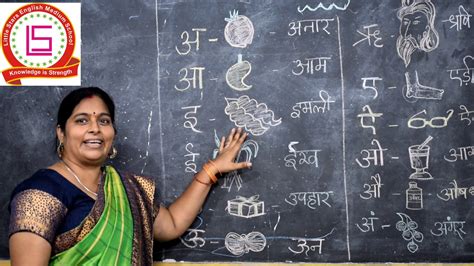 Little Stars English Medium School
Knowledge is Strength
अ - अनार
आ - आम
इ - इमली
ई - ईख
उपहार
ऊ - ऊन
ऋ - ऋषि
ए - एड़ी
ऐ -
ओ -
औ -
अं - अंगूर